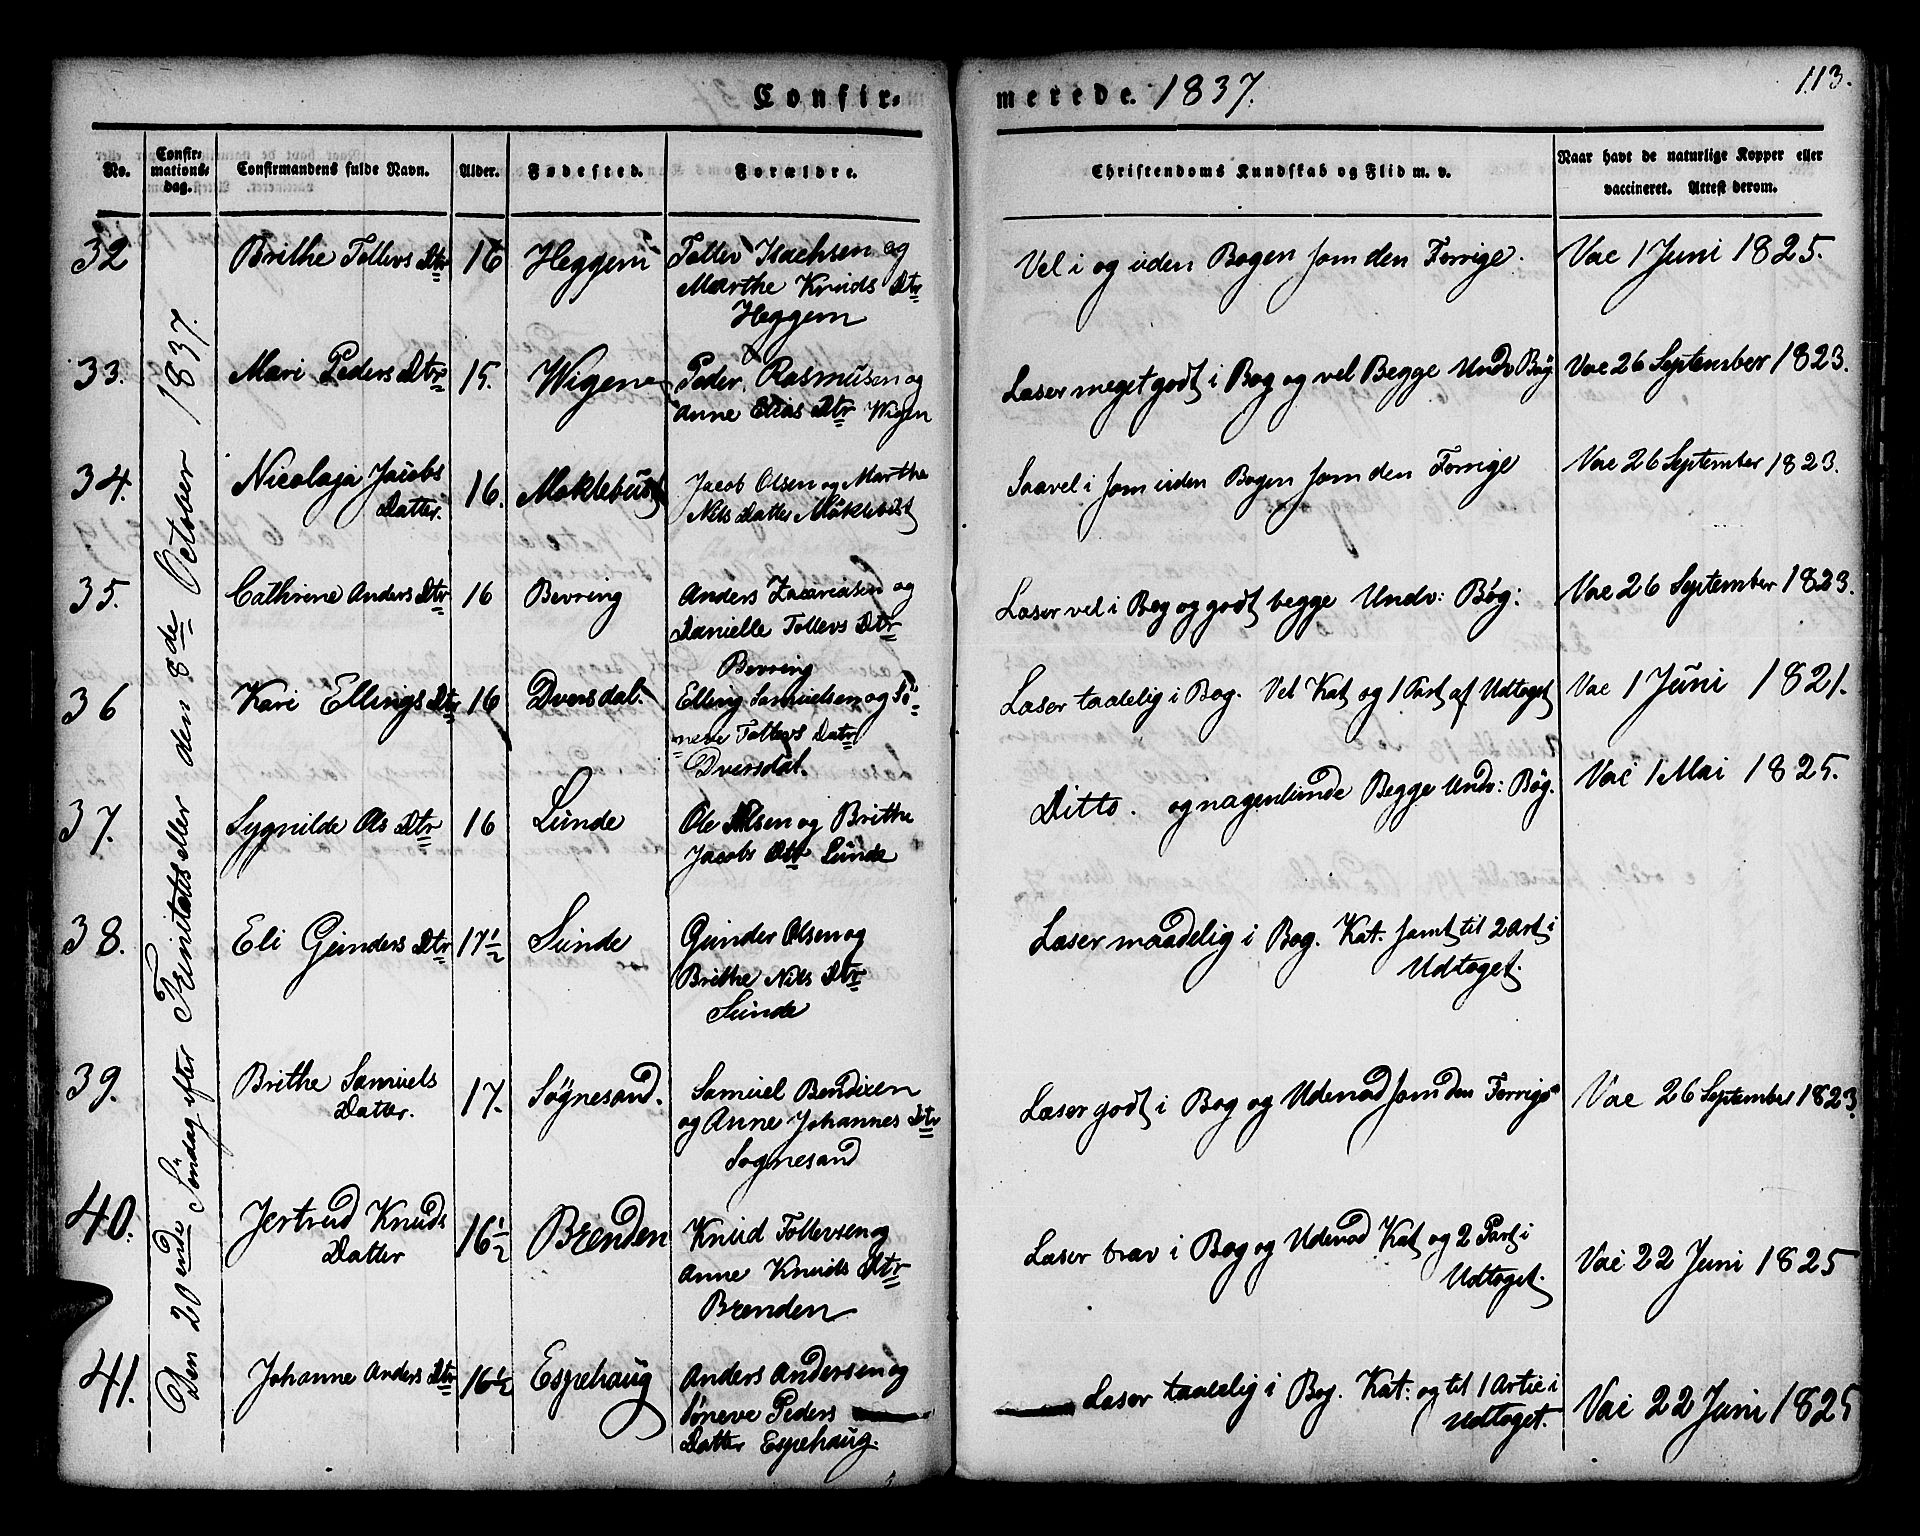 Confir-
merede. 1837.
113.
No.
Confir-
mations-
dag.
Confirmandens fulde Navn.
Alder.
Fødested.
Forældre.
Christendoms Kundskab og Flid m. v.
Naar havt de naturlige Kopper eller
vaccineret. Attest derom.
Den 20ende Søndag efter Trinitatis eller den 8de October 1837.
32 Brithe Tollevs Dtr 16 Heggem Tollev Isachsen og
Marthe Knuds Dtr
Heggem
Vel i og uden Bogen som den Forrige. Vac 1 Juni 1825.
33. Mari Peders Dtr 15. Wigen Peder Rasmusen og
Anne Elias Dtr Wigen
Læser meget godt i Bog og vel Begge Undv Bøg Vac 26 September 1823.
34. Nicolaja Jacobs
Datter. 16. Møklebust Jacob Olsen og Marthe
Nils Datter Møklebust
Saavel i som uden Bogen som den Forrige Vac 26 September 1823.
35. Cathrine Anders Dtr 16 Bevring Anders Zacariasen og
Danielle Tollevs Dtr
Bevring
Læser vel i Bog og godt begge Undv: Bøg: Vac 26 September 1823.
36 Kari Ellings Dtr 16 Dversdal. Elling Samuelsen og Sø-
neve Tollevs Datr
Dversdal.
Læser taalelig i Bog. Vel Kat og 1 Part af Udtoget Vac 1 Juni 1821.
37. Sygnilde Ols Dtr 16 Lunde Ole Nilsen og Brithe
Jacobs Dtr Lunde
Ditto. og nogenlunde Begge Undv: Bøg. Vac 1 Mai 1825.
38. Eli Gunders Dtr 17½ Sunde Gunder Olsen og
Brithe Nils Dtr
Sunde
Læser maadelig i Bog. Kat. samt til 2 Art i
Udtoget.
39. Brithe Samuels
Datter. 17. Søgnesand. Samuel Bendixen
og Anne Johannes Dtr
Søgnesand
Læser godt i Bog og Udenad som den Forrige Vac 26 September 1823.
40. Jertrud Knuds
Datter 16½ Brenden Knud Tollevsen og
Anne Knuds Dtr
Brenden
Læser brav i Bog og Udenad Kat og 2 Part i
Udtoget. Vac 22 Juni 1825
41. Johanne Anders Dtr 16½ Espehaug Anders Andersen og
Søneve Peders
Datter Espehaug.
Læser taalelig i Bog. Kat: og til 1 Artic i
Udtoget. Vac 22 Juni 1825